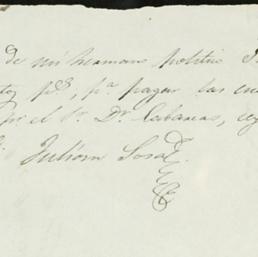 de mi hermano politico
p.s, p.a pagar las
por el Sr. Dr. Cabanas,
Julián Sosa